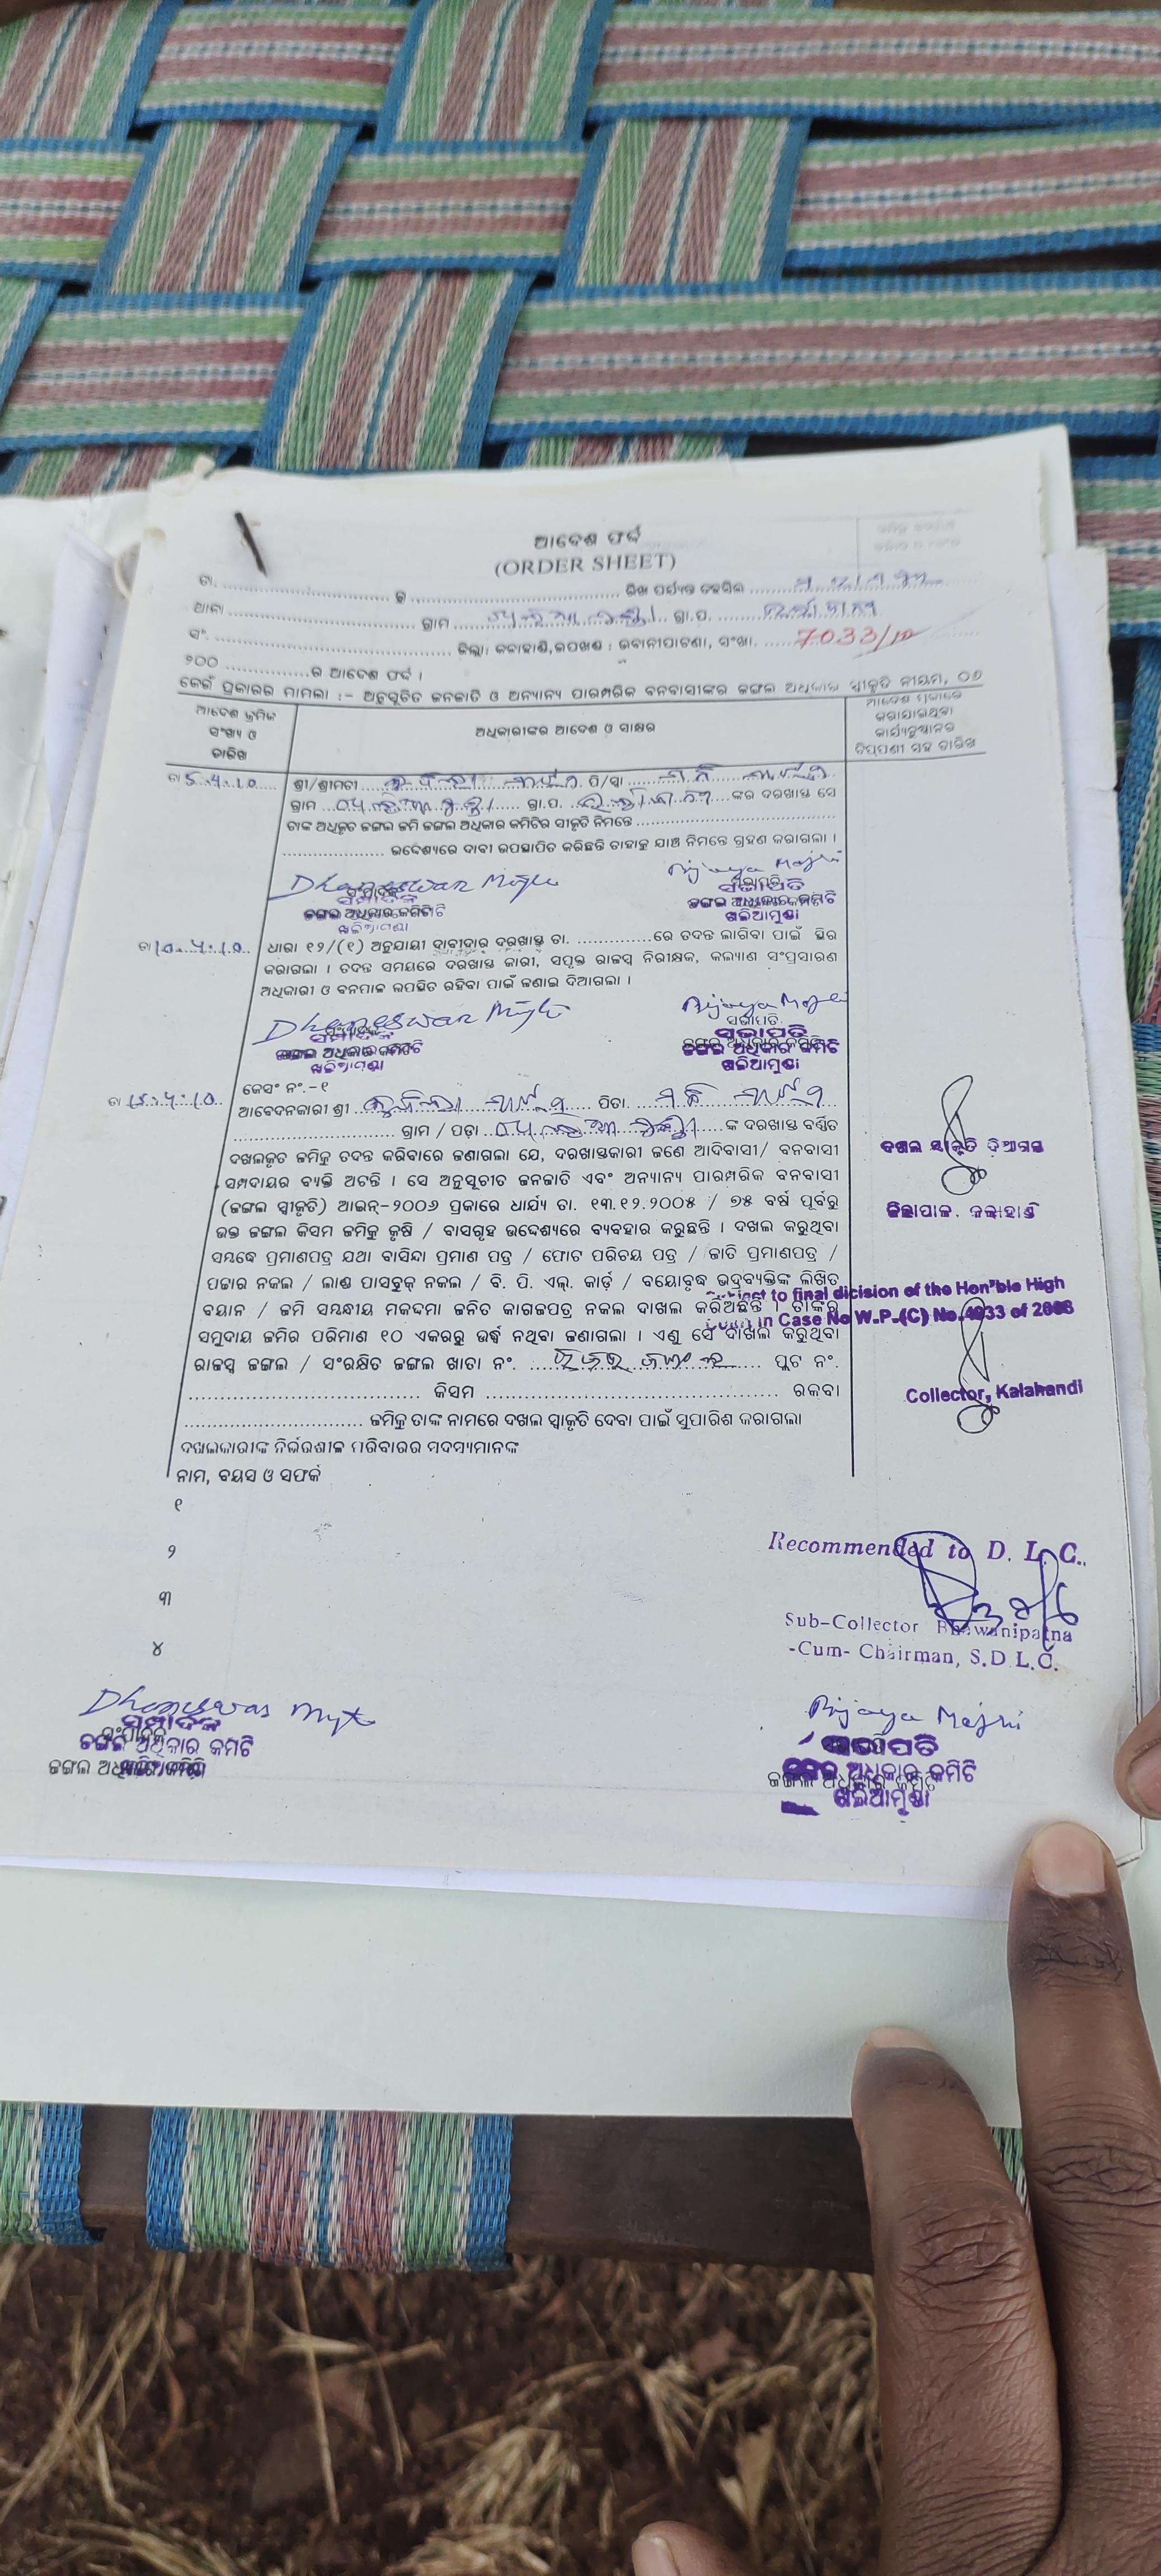 ଆଦେଶ ଫର୍ଦ୍ଦ
(ORDER SHEET)
ତା. ........ ରୁ ........ ରିଖ ପର୍ଯ୍ୟନ୍ତ ତହସିଲ ........
ଥାନା ........ ଗ୍ରାମ ........ ଗ୍ରା.ପ. ........
ସଂ. ........ ଜିଲ୍ଲା: କଳାହାଣ୍ଡି, ଉପଖଣ୍ଡ : ଭବାନୀପାଟଣା, ସଂଖା. 7033/10
୨୦୦ ........ ର ଆଦେଶ ଫର୍ଦ୍ଦ ।
କେଉଁ ପ୍ରକାରର ମାମଲା :- ଅନୁସୂଚିତ ଜନଜାତି ଓ ଅନ୍ୟାନ୍ୟ ପାରମ୍ପରିକ ବନବାସୀଙ୍କର ଜଙ୍ଗଲ ଅଧିକାର ସ୍ୱୀକୃତି ନିୟମ, ୦୬
ଆଦେଶ କ୍ରମିକ
ସଂଖ୍ୟା ଓ
ତାରିଖ
ଅଧିକାରୀଙ୍କର ଆଦେଶ ଓ ସାକ୍ଷର
ଆଦେଶ ମୁତାବେ
କରାଯାଇଥିବା
କାର୍ଯ୍ୟାନୁଷ୍ଠାନର
ଟିପ୍ପଣୀ ସହ ତାରିଖ
ତା 5.4.10 ଶ୍ରୀ/ଶ୍ରୀମତୀ ........ ପି/ସ୍ୱା ........
ଗ୍ରାମ ........ ଗ୍ରା.ପ. ........ ଙ୍କର ଦରଖାସ୍ତ ସେ
ତାଙ୍କ ଅଧିକୃତ ଜଙ୍ଗଲ ଜମି ଜଙ୍ଗଲ ଅଧିକାର କମିଟିର ସ୍ୱୀକୃତି ନିମନ୍ତେ ........
........ ଉଦ୍ଦେଶ୍ୟରେ ଦାବୀ ଉପସ୍ଥାପିତ କରିଛନ୍ତି ତାହାକୁ ଯାଞ୍ଚ ନିମନ୍ତେ ଗ୍ରହଣ କରାଗଲା ।
Dhaneswar Majhi
Bijaya Majhi
ସଂପାଦକ
ସଭାପତି
ଜଙ୍ଗଲ ଅଧିକାର କମିଟି
ଜଙ୍ଗଲ ଅଧିକାର କମିଟି
ଖଲିଆମୁଣ୍ଡା
ଖଲିଆମୁଣ୍ଡା
ତା 10.4.10 ଧାରା ୧୨/(୧) ଅନୁଯାୟୀ ଦାବୀଦାର ଦରଖାସ୍ତ ତା. ........ ରେ ତଦନ୍ତ ଲାଗିବା ପାଇଁ ସ୍ଥିର
କରାଗଲା । ତଦନ୍ତ ସମୟରେ ଦରଖାସ୍ତ କାରୀ, ସମ୍ପୃକ୍ତ ରାଜସ୍ୱ ନିରୀକ୍ଷକ, କଲ୍ୟାଣ ସଂପ୍ରସାରଣ
ଅଧିକାରୀ ଓ ବନପାଳ ଉପସ୍ଥିତ ରହିବା ପାଇଁ ଜଣାଇ ଦିଆଗଲା ।
Dhaneswar Majhi
Bijaya Majhi
ସଂପାଦକ
ସଭାପତି
ଜଙ୍ଗଲ ଅଧିକାର କମିଟି
ଜଙ୍ଗଲ ଅଧିକାର କମିଟି
ଖଲିଆମୁଣ୍ଡା
ଖଲିଆମୁଣ୍ଡା
କେସ୍ ନଂ.-୧
ତା 15.4.10 ଆବେଦନକାରୀ ଶ୍ରୀ ........ ପିତା. ........
........ ଗ୍ରାମ / ପଡ଼ା ........ ଙ୍କ ଦରଖାସ୍ତ ବର୍ଣ୍ଣିତ
ଦଖଲକୃତ ଜମିକୁ ତଦନ୍ତ କରିବାରେ ଜଣାଗଲା ଯେ, ଦରଖାସ୍ତକାରୀ ଜଣେ ଆଦିବାସୀ/ ବନବାସୀ
ସମ୍ପଦାୟର ବ୍ୟକ୍ତି ଅଟନ୍ତି । ସେ ଅନୁସୂଚୀତ ଜନଜାତି ଏବଂ ଅନ୍ୟାନ୍ୟ ପାରମ୍ପରିକ ବନବାସୀ
(ଜଙ୍ଗଲ ସ୍ୱୀକୃତି) ଆଇନ୍-୨୦୦୬ ପ୍ରକାରେ ଧାର୍ଯ୍ୟ ତା. ୧୩.୧୨.୨୦୦୫ / ୭୫ ବର୍ଷ ପୂର୍ବରୁ
ଉକ୍ତ ଜଙ୍ଗଲ କିସମ ଜମିକୁ କୃଷି / ବାସଗୃହ ଉଦ୍ଦେଶ୍ୟରେ ବ୍ୟବହାର କରୁଛନ୍ତି । ଦଖଲ କରୁଥିବା
ସମ୍ବନ୍ଧେ ପ୍ରମାଣପତ୍ର ଯଥା ବାସିନ୍ଦା ପ୍ରମାଣ ପତ୍ର / ଫୋଟ ପରିଚୟ ପତ୍ର / ଜାତି ପ୍ରମାଣପତ୍ର /
ପଟ୍ଟାର ନକଲ / ଲାଣ୍ଡ ପାସବୁକ୍ ନକଲ / ବି. ପି. ଏଲ୍. କାର୍ଡ଼ / ବୟୋବୃଦ୍ଧ ଭଦ୍ରବ୍ୟକ୍ତିଙ୍କ ଲିଖିତ
ବୟାନ / ଜମି ସମ୍ବନ୍ଧୀୟ ମକଦ୍ଦମା ଜନିତ କାଗଜପତ୍ର ନକଲ ଦାଖଲ କରିଅଛନ୍ତି । ତାଙ୍କର
ସମୁଦାୟ ଜମିର ପରିମାଣ ୧୦ ଏକରରୁ ଉର୍ଦ୍ଧ୍ୱ ନଥିବା ଜଣାଗଲା । ଏଣୁ ସେ ଦାଖଲ କରୁଥିବା
ରାଜସ୍ୱ ଜଙ୍ଗଲ / ସଂରକ୍ଷିତ ଜଙ୍ଗଲ ଖାତା ନଂ. ........ ପ୍ଲଟ ନଂ.
........ କିସମ ........ ରକବା
........ ଜମିକୁ ତାଙ୍କ ନାମରେ ଦଖଲ ସ୍ୱୀକୃତି ଦେବା ପାଇଁ ସୁପାରିଶ କରାଗଲା
ଦଖଲକାରୀଙ୍କ ନିର୍ଭରଶୀଳ ପରିବାରର ସଦସ୍ୟମାନଙ୍କ
ନାମ, ବୟସ ଓ ସଫର୍କ
୧
୨
୩
୪
ଦଖଲ ସ୍ୱୀକୃତି ଦିଆଗଲା
ଜିଲ୍ଲାପାଳ. କଳାହାଣ୍ଡି
to final dicision of the Hon'ble High
in Case No W.P.(C) No.4933 of 2008
Collector, Kalahandi
Recommended to D. L. C.
Sub-Collector Bhawanipatna
-Cum- Chairman, S.D.L.C.
Dhaneswar
Bijaya Majhi
ସଂପାଦକ
ସଭାପତି
ଜଙ୍ଗଲ ଅଧିକାର କମିଟି
ଜଙ୍ଗଲ ଅଧିକାର କମିଟି
ଖଲିଆମୁଣ୍ଡା